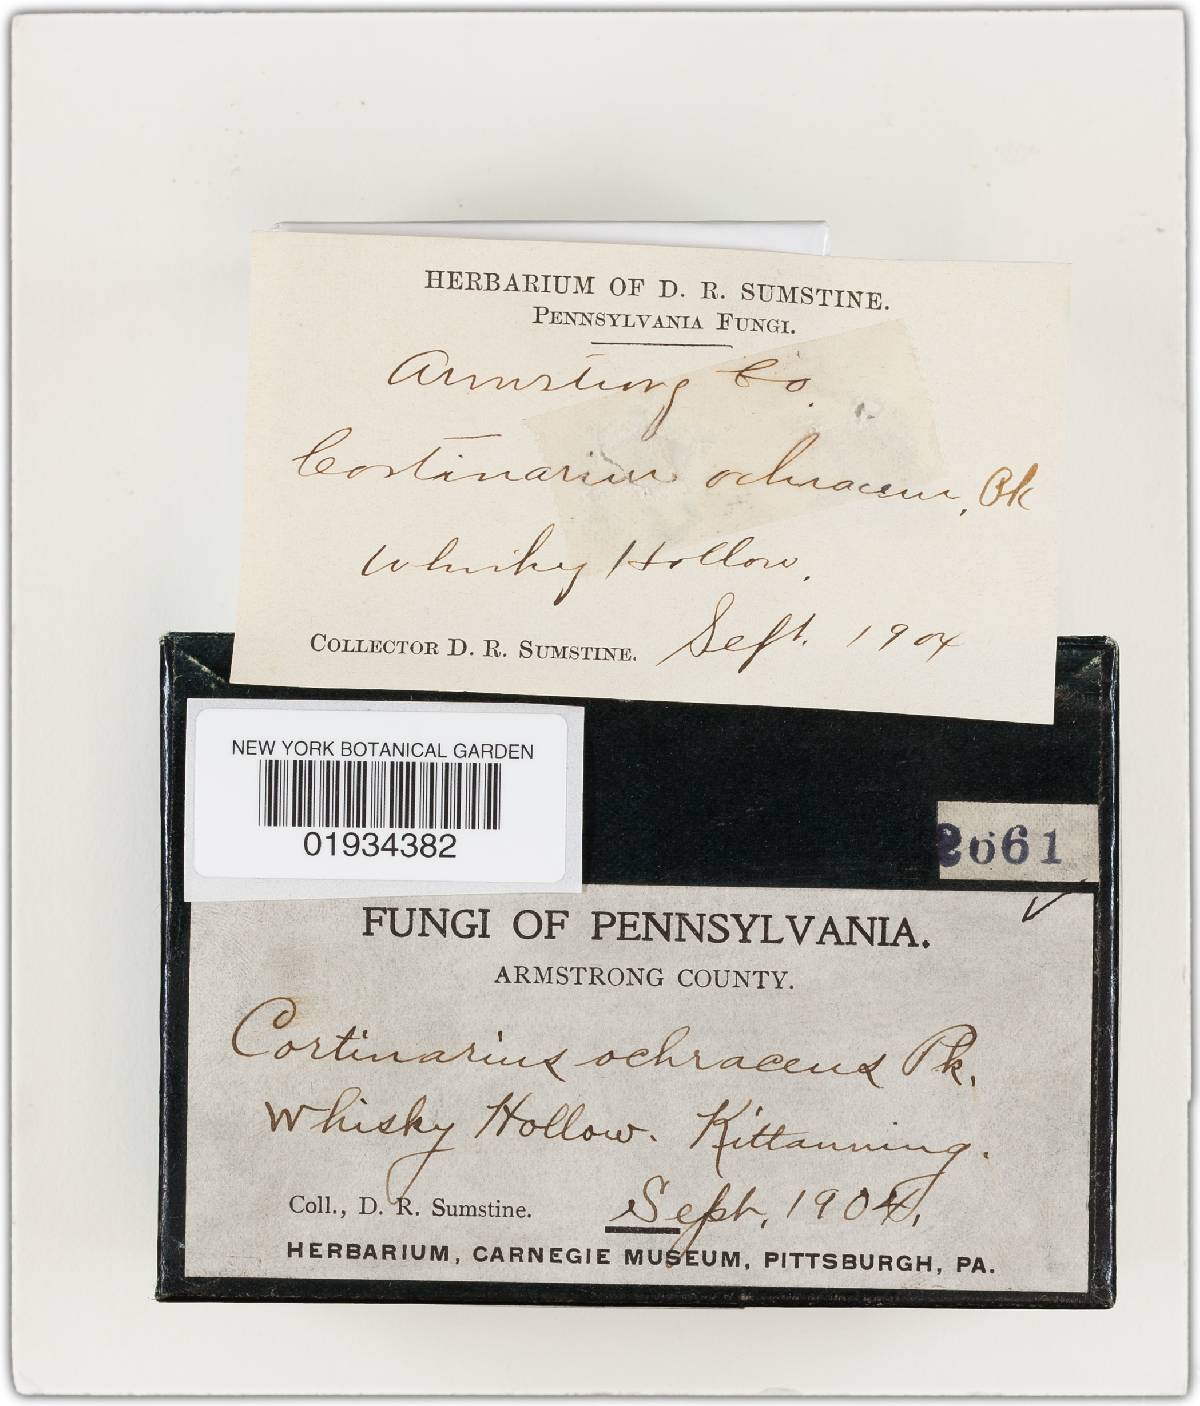 HERBARIUM OF D. R. SUMSTINE.
PENNSYLVANIA FUNGI.
Armstrong Co.
Cortinarius ochraceus, Pk
Whisky Hollow.
COLLECTOR D. R. SUMSTINE. Sept. 1904
NEW YORK BOTANICAL GARDEN
01934382
2661
FUNGI OF PENNSYLVANIA.
ARMSTRONG COUNTY.
Cortinarius ochraceus Pk.
Whisky Hollow. Kittanning.
Coll., D. R. Sumstine. Sept, 1904,
HERBARIUM, CARNEGIE MUSEUM, PITTSBURGH, PA.